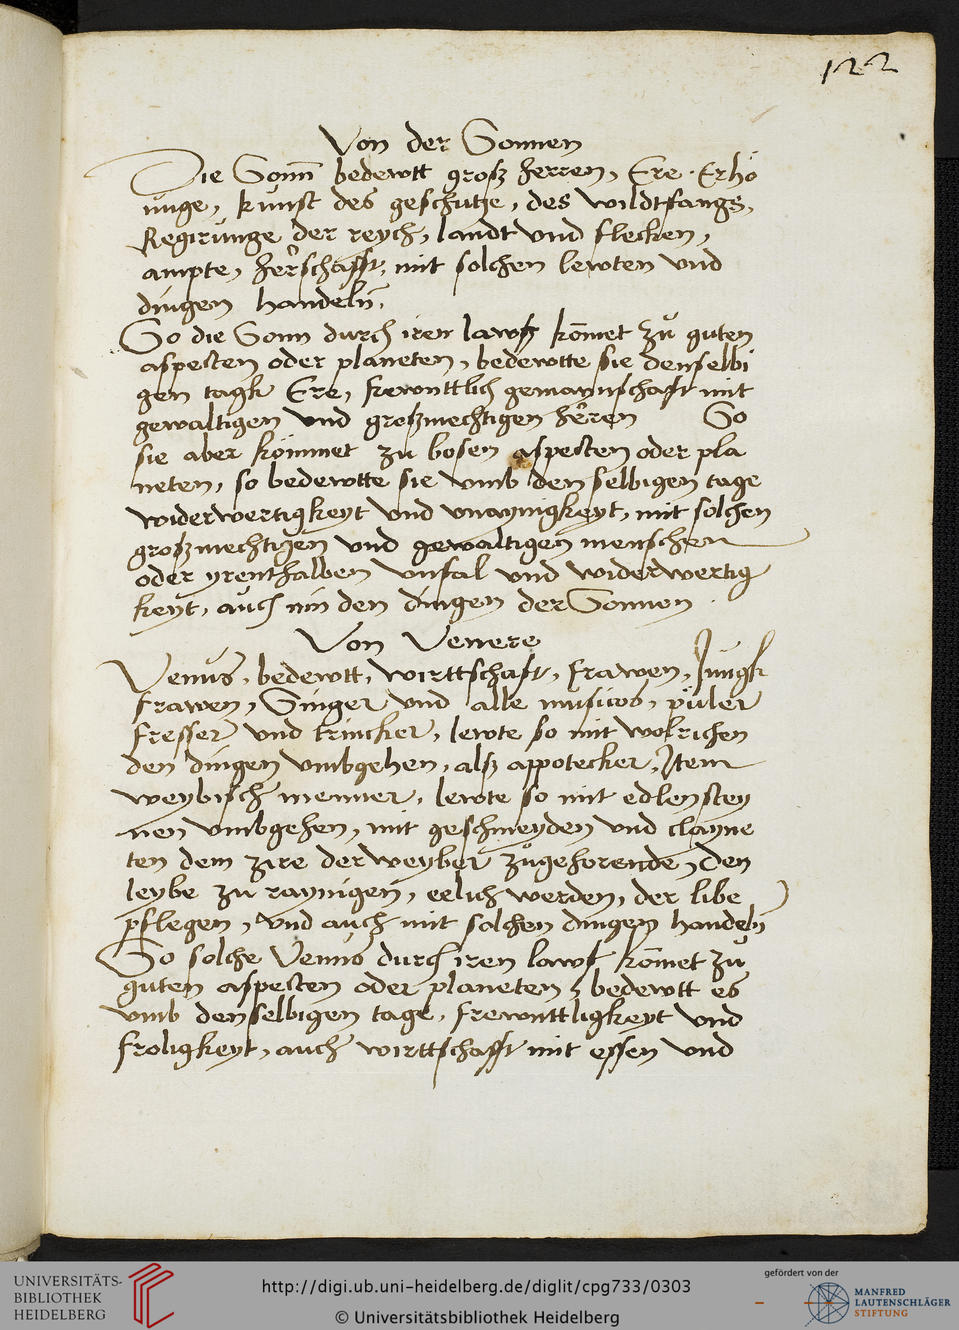 122
Von der Sonnen
Die Soñn bedewtt groß herren, Ere. Erhö
unge, kunst des geschutze, des wildtfangs,
Regirunge der reych, landt vnd flecken,
ampte, herschafft, mit solchen lewten vnd
dingen handeln̄.
So die Sonn durch iren lawff kom̄et zu guten
aspecten oder planeten, bedewtte sie denselbi
gen tagk Ere, frewnttlich gemaynschafft mit
gewaltigen vnd großmechtigen herren So
sie aber kommet zu bosen aspecten oder pla
neten, so bedewtte sie vmb den selbigen tage
widerwertigkeyt vnd vnaynigkeyt, mit solchen
großmechtigen vnd gewaltigen menschen
oder yrenthalben vnfal vnd widerwertig
keyt, auch inn den dingen der Sonnen.
Von Venere
Venus, bedewtt, wirttschafft, frawen, Jungk
frawen, Singer vnd alle musicos, püler
fresser vnd trincker, lewte so mit wolrichen
den dingen vmbgehen, alß appotecker, Item
weybisch menner, lewte so mit edlen stey
nen vmbgehen, mit geschmeyden vnd clayne
ten dem zire der weyber zugehorende, den
leybe zu raynigen, eelich werden, der libe
pflegen, vnd auch mit solchen dingen handeln̄
So solche Venus durch iren lawff kom̄et zu
guten aspecten oder planeten, bedewtt es
vmb denselbigen tage, frewnttligkeyt vnd
froligkeyt, auch wirttschafft mit essen vnd
UNIVERSITÄTS-
BIBLIOTHEK
HEIDELBERG
http://digi.ub.uni-heidelberg.de/diglit/cpg733/0303
© Universitätsbibliothek Heidelberg
gefördert von der
MANFRED
LAUTENSCHLÄGER
STIFTUNG